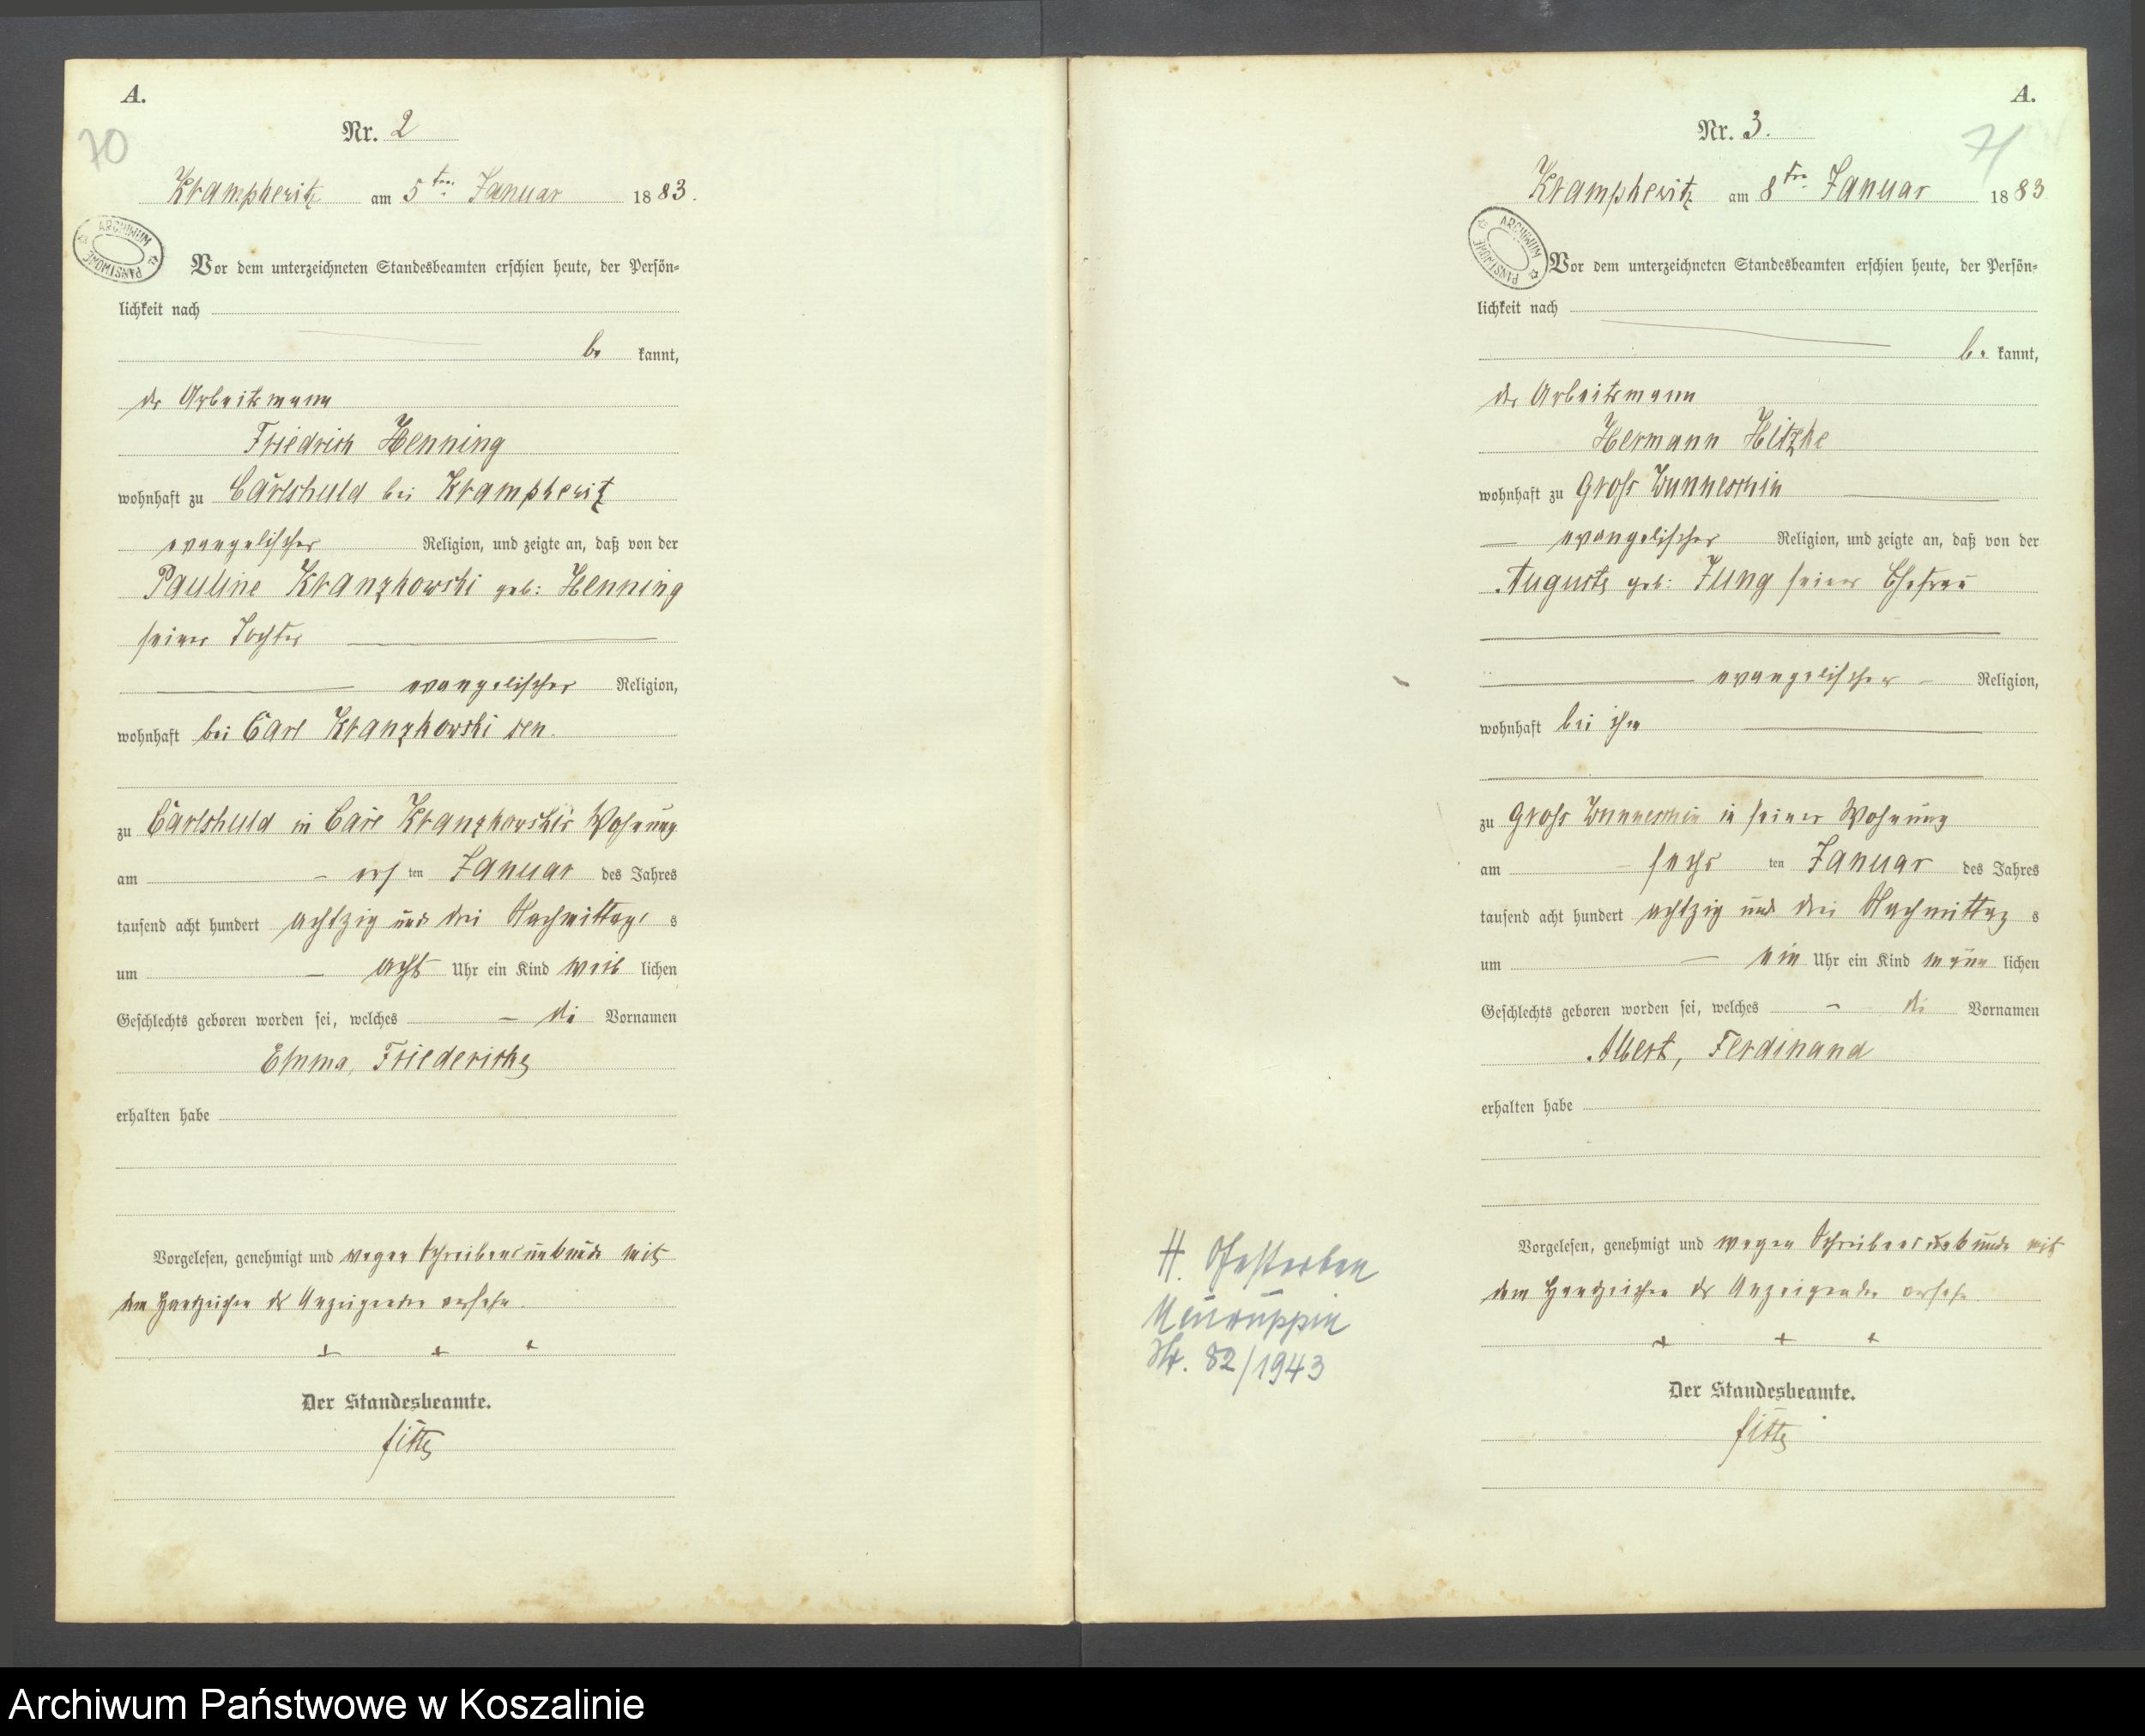 A.
70
Nr. 2
Krampkewitz am 5ten Januar 1883.
ARCHIWUM PAŃSTWOWE
Vor dem unterzeichneten Standesbeamten erschien heute, der Persön-
lichkeit nach
be kannt,
der Arbeitsmann
Friedrich Henning
wohnhaft zu Carlshuld bei Krampkewitz
evangelischer Religion, und zeigte an, daß von der
Pauline Kranzkowski geb: Henning
seiner Tochter
evangelischer Religion,
wohnhaft bei Carl Kranzkowski sen.
zu Carlshuld in Carl Kranzkowski's Wohnung
am ers ten Januar des Jahres
tausend acht hundert achtzig und drei Nachmittag s
um acht Uhr ein Kind weib lichen
Geschlechts geboren worden sei, welches die Vornamen
Emma, Friederike
erhalten habe
Vorgelesen, genehmigt und wegen Schreibensunkunde mit
dem Handzeichen des Anzeigenden versehn.
+ + +
Der Standesbeamte.
A.
71
Nr. 3.
Krampkewitz am 8ten Januar 1883
ARCHIWUM PAŃSTWOWE
Vor dem unterzeichneten Standesbeamten erschien heute, der Persön-
lichkeit nach
be kannt,
der Arbeitsmann
Hermann Hitzke
wohnhaft zu Gross Wunneschin
evangelischer Religion, und zeigte an, daß von der
Auguste geb: Jung seiner Ehefrau
evangelischer Religion,
wohnhaft bei ihm
zu Gross Wunneschin in seiner Wohnung
am sechs ten Januar des Jahres
tausend acht hundert achtzig und drei Nachmittag s
um ein Uhr ein Kind männ lichen
Geschlechts geboren worden sei, welches die Vornamen
Albert, Ferdinand
erhalten habe
Vorgelesen, genehmigt und wegen Schreibensunkunde mit
dem Handzeichen des Anzeigenden versehn.
+ + +
Der Standesbeamte.
H. Gestorben
Neuruppin
Nr. 82/1943
Archiwum Państwowe w Koszalinie